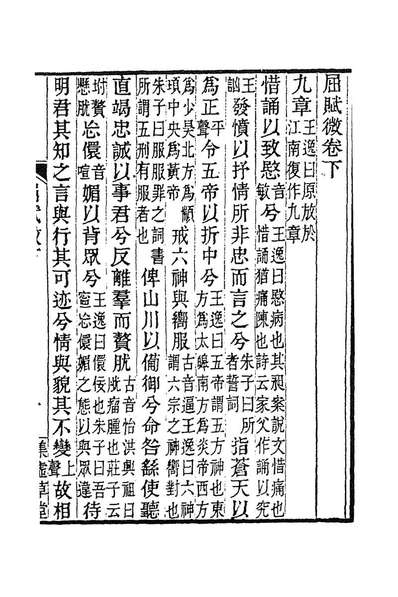 屈賦微卷下
九章王逸曰原放於江南復作九章
惜誦以致愍音敏兮王逸曰愍病也其昶案說文惜痛也惜誦猶痛陳也詩云家父作誦以究
王訩發憤以抒情所非忠而言之兮朱子曰所者誓詞指蒼天以
爲正平聲令五帝以折中兮王逸曰五帝謂五方神也東方爲太皞南方爲炎帝西方
爲少昊北方爲顓頊中央爲黃帝戒六神與嚮服古音逼王逸曰六神謂六宗之神嚮對也
朱子曰服服罪之詞書所謂五刑有服者也俾山川以僃御兮命咎繇使聽
直竭忠誠以事君兮反離羣而贅肬古音怡洪興祖曰肬瘤腫也莊子云
坿贅懸肬忘儇音喧媚以背眾兮王逸曰儇佞也朱子曰吾寍忘儇媚之態以與眾違待
明君其知之言與行其可迹兮情與貌其不變上聲故相
屈賦微下
集虛草堂